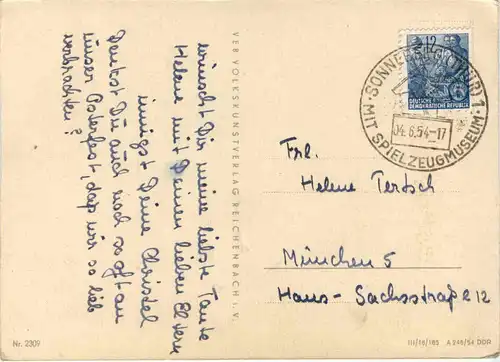 wünscht Dir meine liebste Tante
Helene mit Deinen lieben Eltern
innigst Deine Christel
Denkst Du auch noch so oft an
unser Osterfest, das wir so lieb
verbrachten?
VEB VOLKSKUNSTVERLAG REICHENBACH i. V.
12
DEUTSCHE
DEMOKRATISCHE REPUBLIK
SONNEBERG (THÜR) 1
04.6.54-17
MIT SPIELZEUGMUSEUM
Frl.
Helene Tertsch
München 5
Hans-Sachsstraße 12
Nr. 2309
III/18/185 A 248/54 DDR